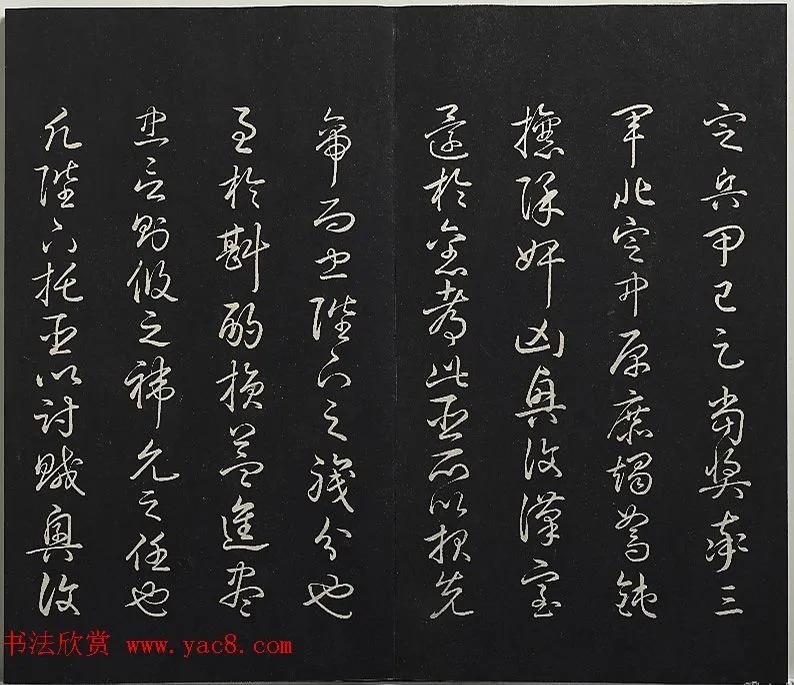 定兵甲已足當獎率三
軍北定中原庶竭駑鈍
攘除奸凶興復漢室
還於舊都此臣所以報先
帝而忠陛下之職分也
至於斟酌損益進盡
忠言則攸之禕允之任也
願陛下托臣以討賊興復
书法欣赏 www.yac8.com